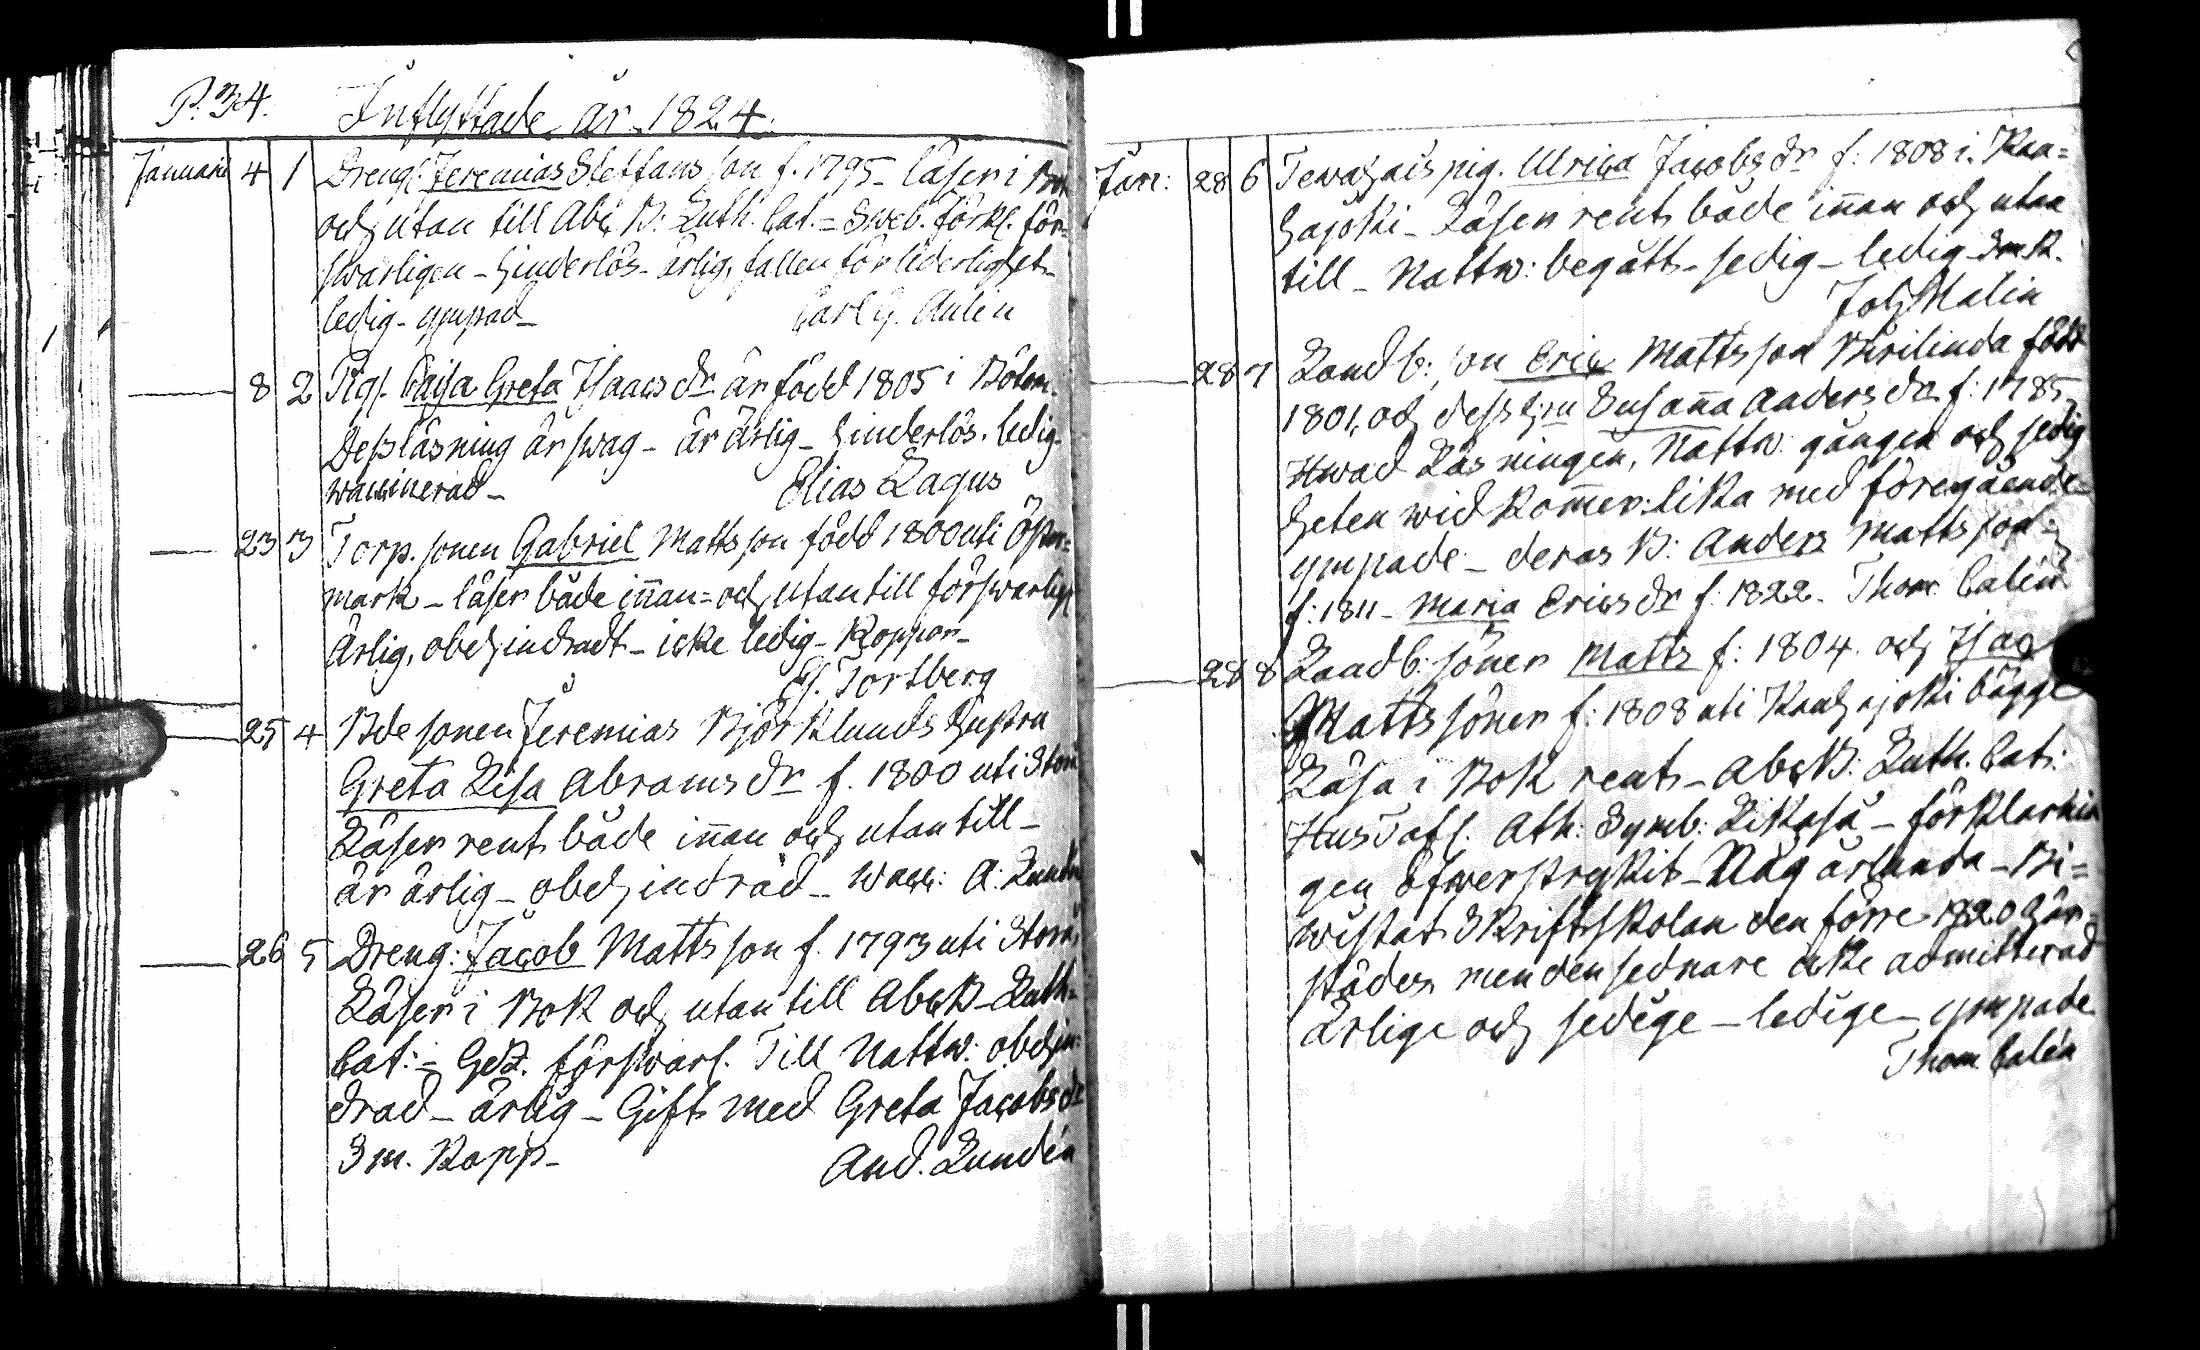 P. 34. Inflyttade år 1824.
Januarii 4 1 Dreng: Jeremias Steffans son f. 1795 - läser i Bok
och utan till Abc B: Luth. Cat. = Sveb. förkl. för-
swarligen - hinderlös - ärlig, fallen för liderlighet -
ledig - ympad - Carl G. Aulin
8 2 Pig. Caisa Greta Isaacs dr är född 1805 i Bötom.
Dess läsning är swag - är ärlig - hinderlös. ledig -
waccinerad - Elias Lagus
23 3 Torp. sonen Gabriel Matts son född 1800 uti Öster-
mark - läser både innan = och utan till förswarligt
ärlig, obehindradt - icke ledig - Koppor -
Tortberg
25 4 Bde sonen Jeremias Björklunds hustru
Greta Lisa Abrams dr f. 1800 uti Storå
Läser rent både innan och utan till -
är ärlig - obehindrad - wacc: A: Lundén
26 5 Dreng: Jacob Matts son f. 1793 uti Storå,
Läser i Bok och utan till AbcB - Luth.
Cat: = Gez. förswarl. Till Nattw: obehin-
drad - ärlig - Gift med Greta Jacobs dr
3 m. Kopp - And. Lundén
Jan: 28 6 pig. Ulrica Jacobs dr f: 1808 i Kau-
hajoki - Läser rent både innan och utan
till - Nattw: begått - sedig - ledig -
Joh Malin
28 7 Landb: son Eric Matts son född
1801, och dess hru Susanna Anders dr f: 1785,
Hwad Läsningen, Nattw. gången och sedig
heten wid kommer: lika med föregående -
ympade - deras B: Anders Matts son
f: 1811 - Maria Erics dr f: 1822. Thom Calén
28 8 Landb: söner Matts f: 1804. och Isac
Matts söner f: 1808 uti Kauhajoki bägge
Läsa i Bok rent - AbcB: Luth. Cat:
Hustafl. Ath: Symb: Likaså - förklarin
gen öfwerstrykit - Någorlunda - Bi-
wistat Skriftskolan den förre 1820 här-
städes men den sednare icke admitterad
ärlige och sedige - ledige - ympade
Thom Calén